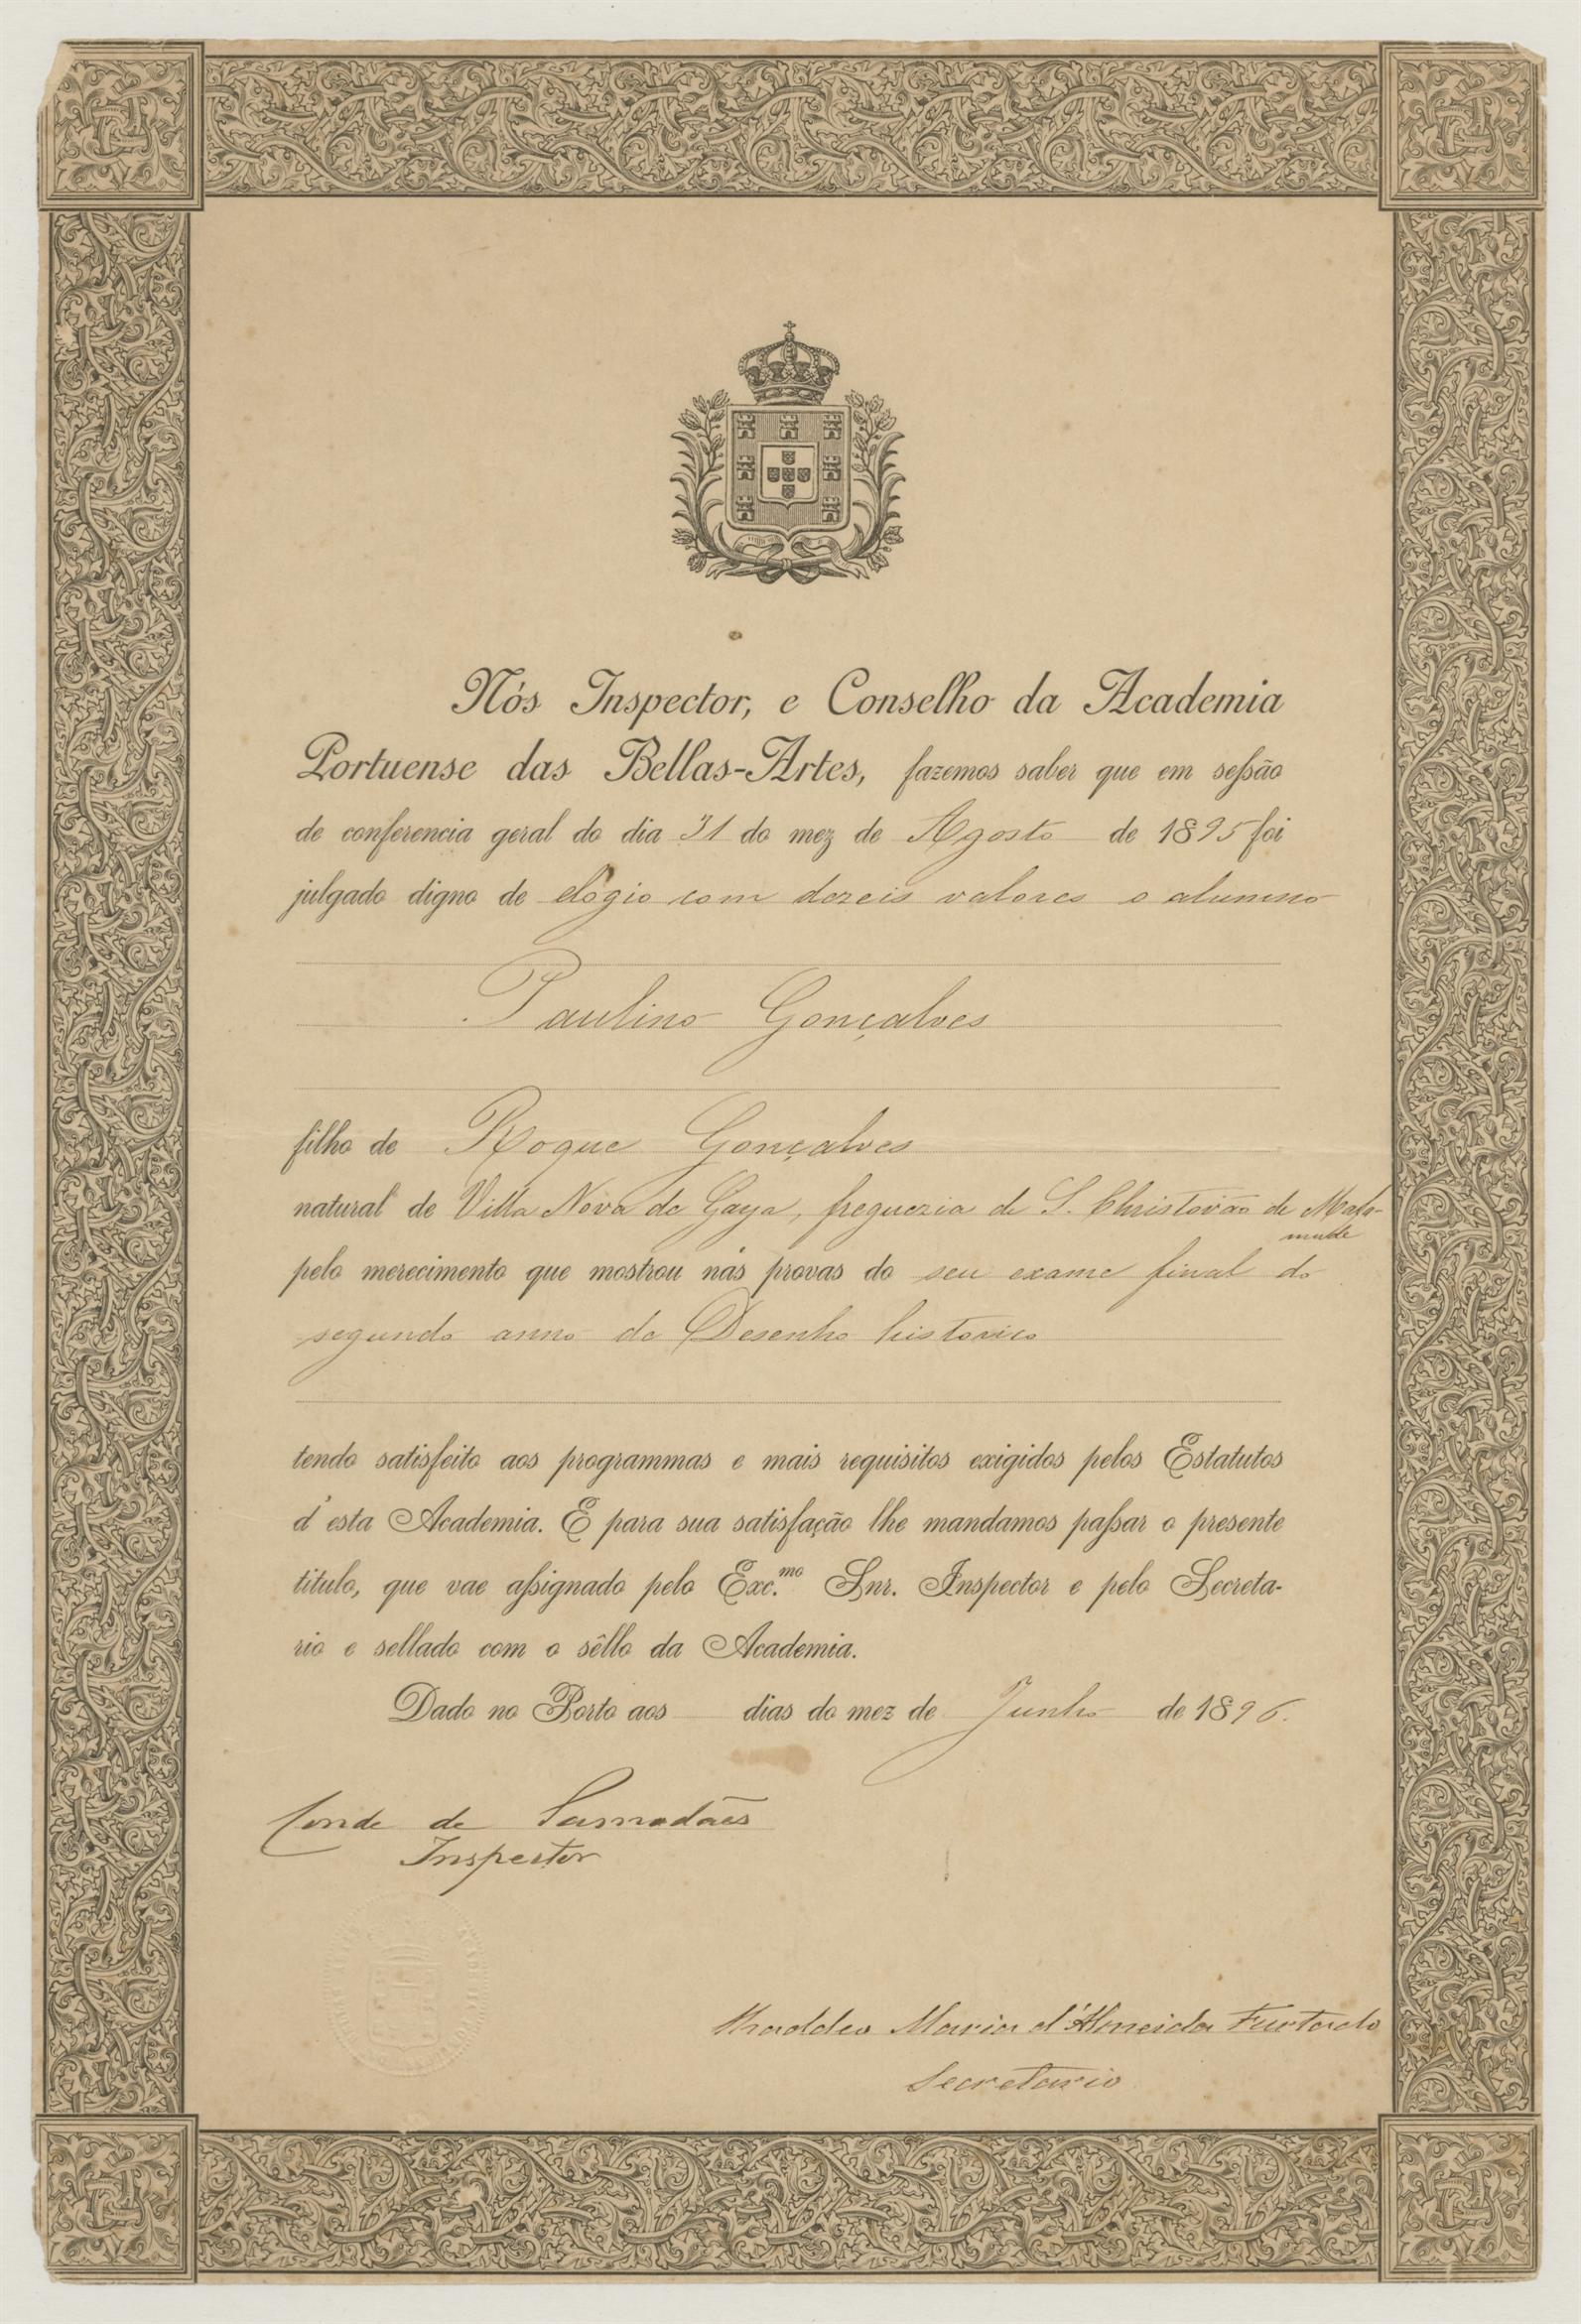 Nós Inspector, e Conselho da Academia
Portuense das Bellas-Artes, fazemos saber que em seſsão
de conferencia geral do dia 31 do mez de Agosto de 1895 foi
julgado digno de elogio com dezeis valores o alumno
Paulino Gonçalves
filho de Roque Gonçalves
natural de Villa Nova de Gaya, freguezia de S. Christovão de Mafa-
mude
pelo merecimento que mostrou nas provas do seu exame final do
segundo anno de Desenho historico
tendo satisfeito aos programmas e mais requisitos exigidos pelos Estatutos
d'esta Academia. E para sua satisfação lhe mandamos paſsar o presente
titulo, que vae aſsignado pelo Exc.mo Snr. Inspector e pelo Secreta-
rio e sellado com o sêllo da Academia.
Dado no Porto aos dias do mez de Junho de 1896.
Conde de Samodães
Inspector
Thaddeo Maria d'Almeida Furtado
Secretario